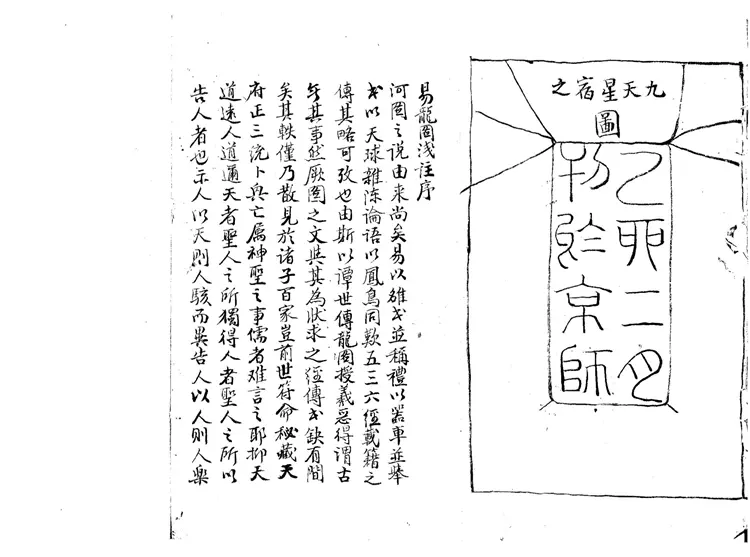 九天星宿之
圖
乙卯二月
刊於京師
易龍圖淺註序
河圖之說由來尚矣易以雒書並稱禮以器車並舉
書以天球雜陳論語以鳳鳥同歎五三六經載籍之
傳其略可攷也由斯以譚世傳龍圖授羲惡得謂古
無其事然厥圖之文與其為狀求之經傳書缺有間
矣其軼僅乃散見於諸子百家豈前世符命秘藏天
府正三統卜興亡屬神聖之事儒者难言之耶抑天
道遠人道邇天者聖人之所獨得人者聖人之所以
告人者也示人以天則人駭而異告人以人則人樂